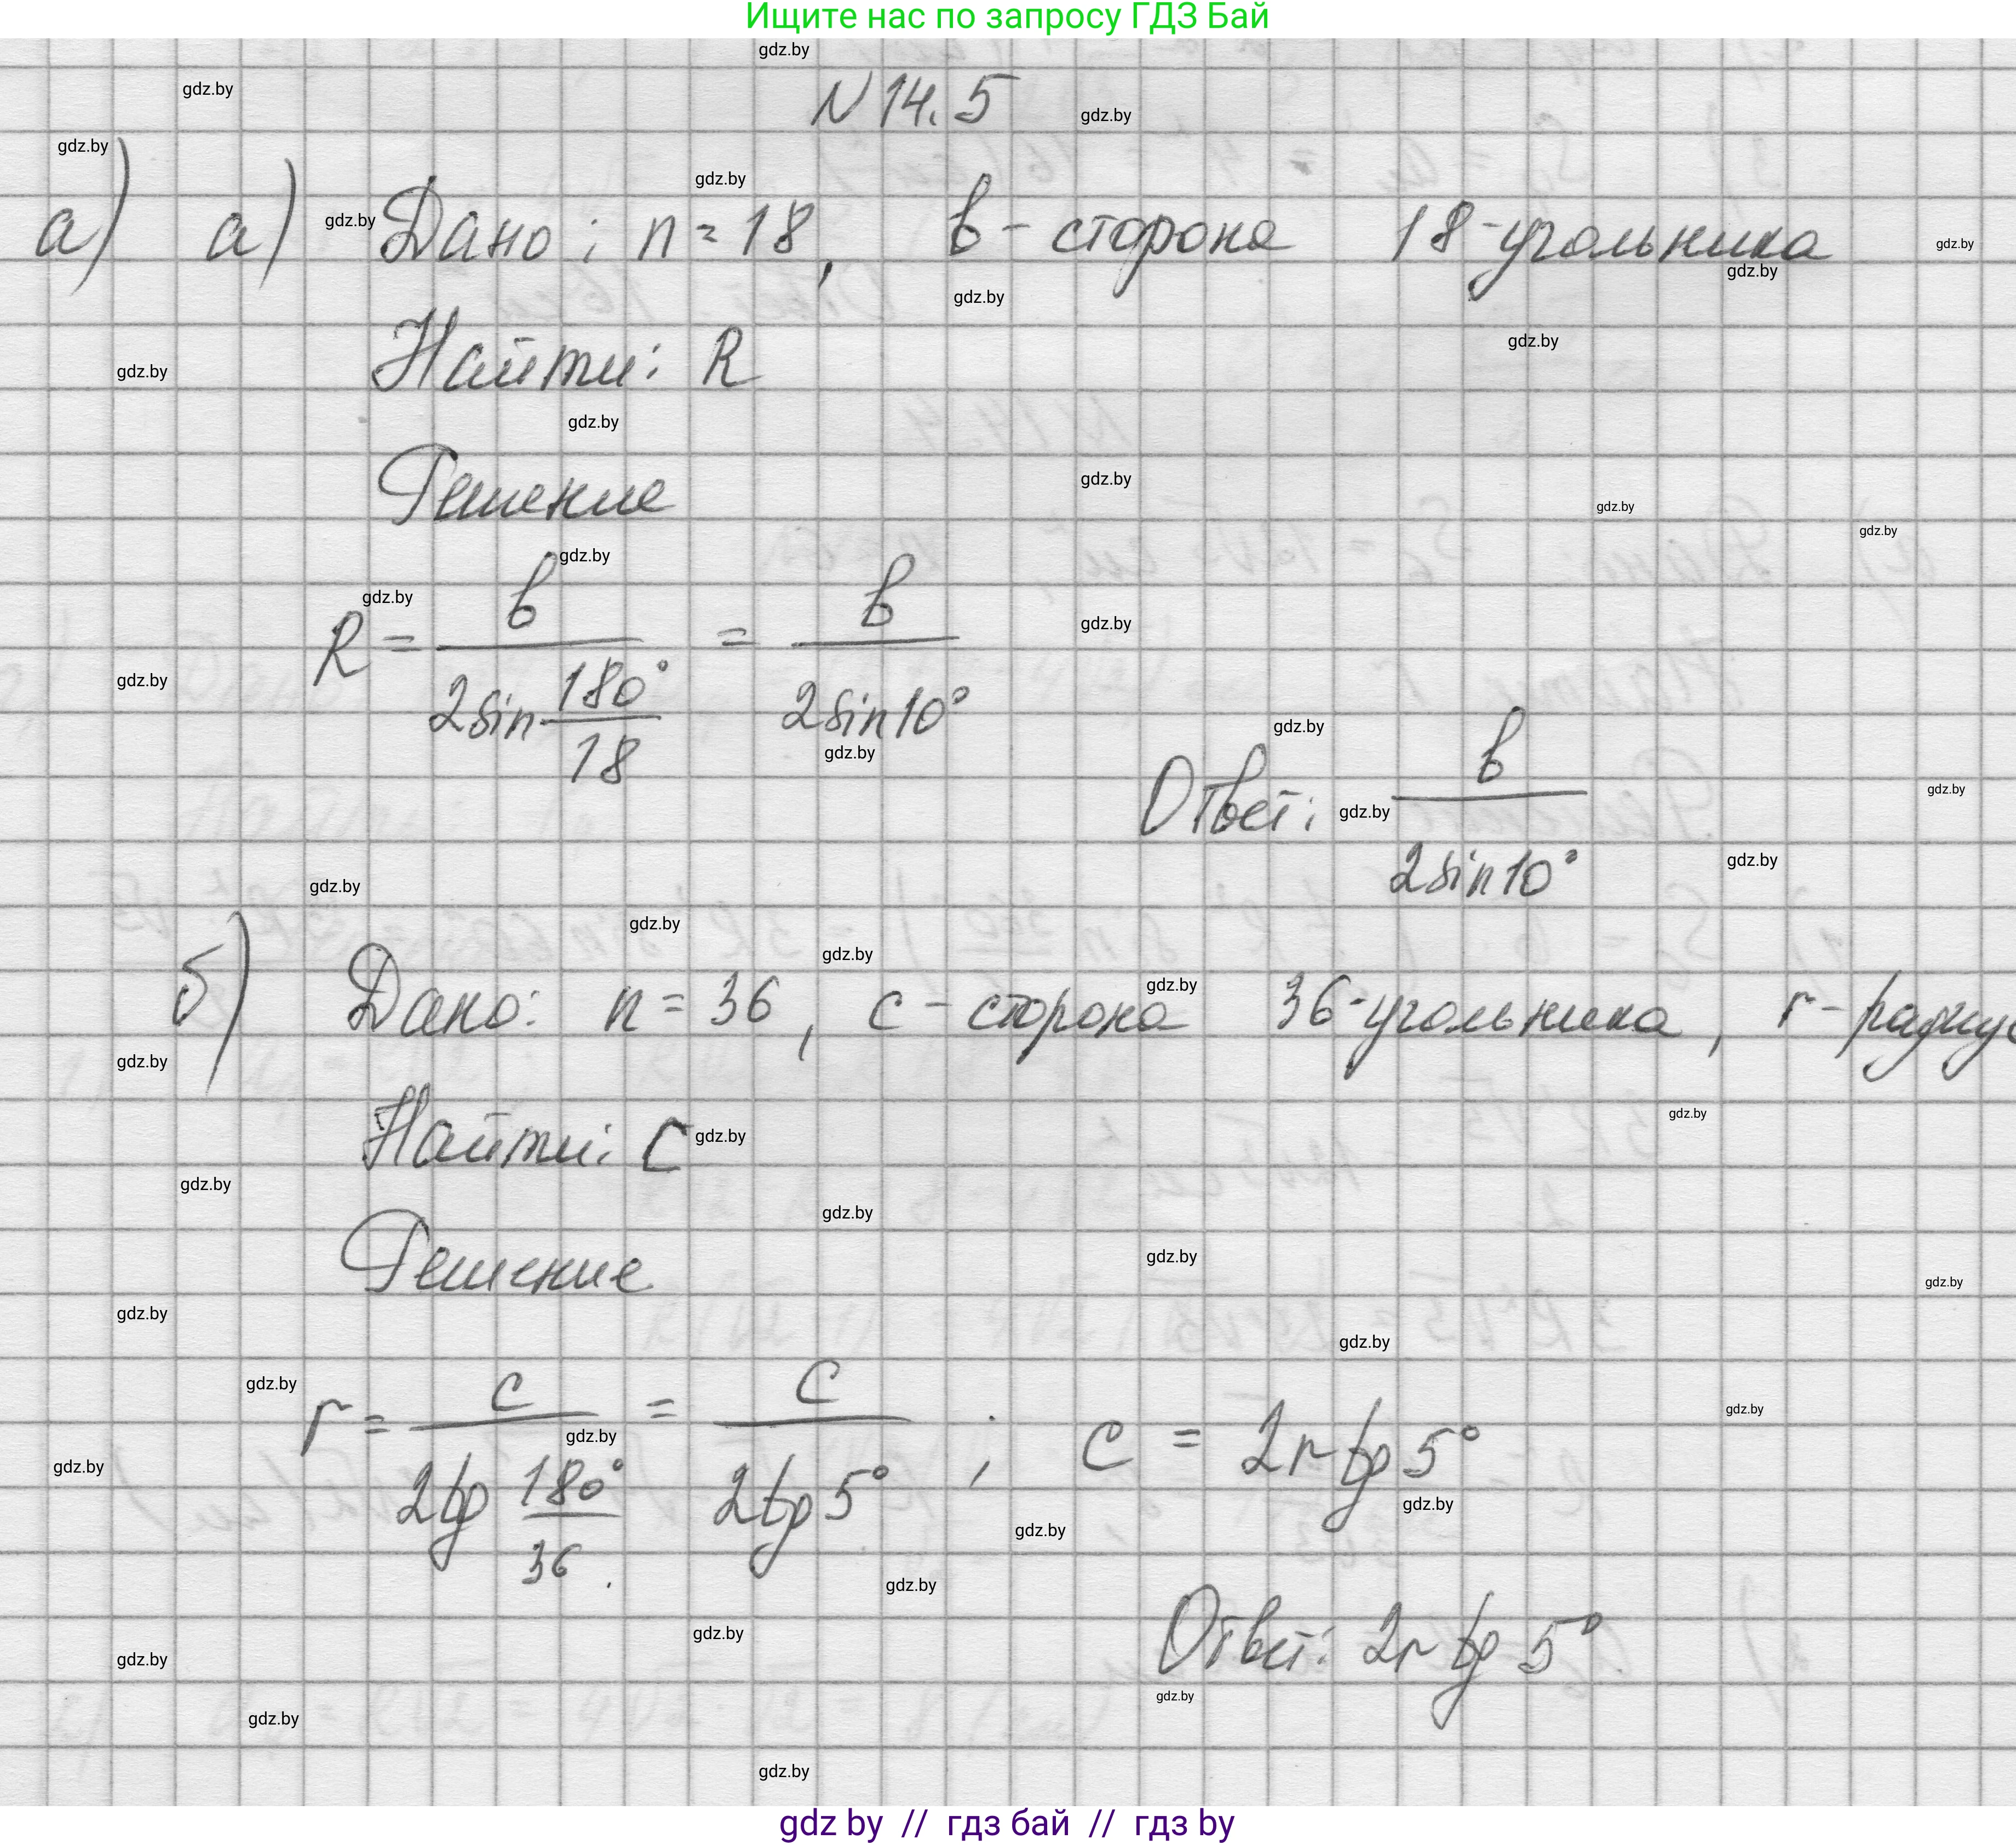 Ищите нас по запросу ГДЗ Бай
N 14.5
а) а) Дано: n = 18, b - сторона 18-угольника
Найти: R
Решение
R = b / (2 sin 180°/18) = b / (2 sin 10°)
Ответ: b / (2 sin 10°)
б) Дано: n = 36, c - сторона 36-угольника, r - радиус
Найти: C
Решение
r = c / (2 tg 180°/36) = c / (2 tg 5°) ; c = 2r tg 5°
Ответ: 2r tg 5°
gdz by // гдз бай // гдз by
gdz.by